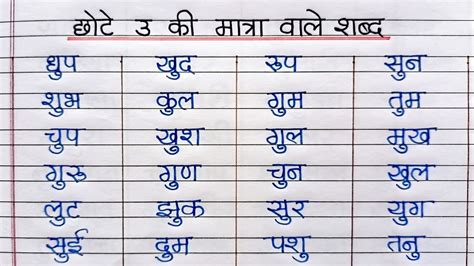 छोटे उ की मात्रा वाले शब्द
धुप खुद रुप सुन
शुभ कुल गुम तुम
चुप खुश गुल मुख
गुरु गुण चुन खुल
लुट झुक सुर युग
सुई दुम पशु तनु